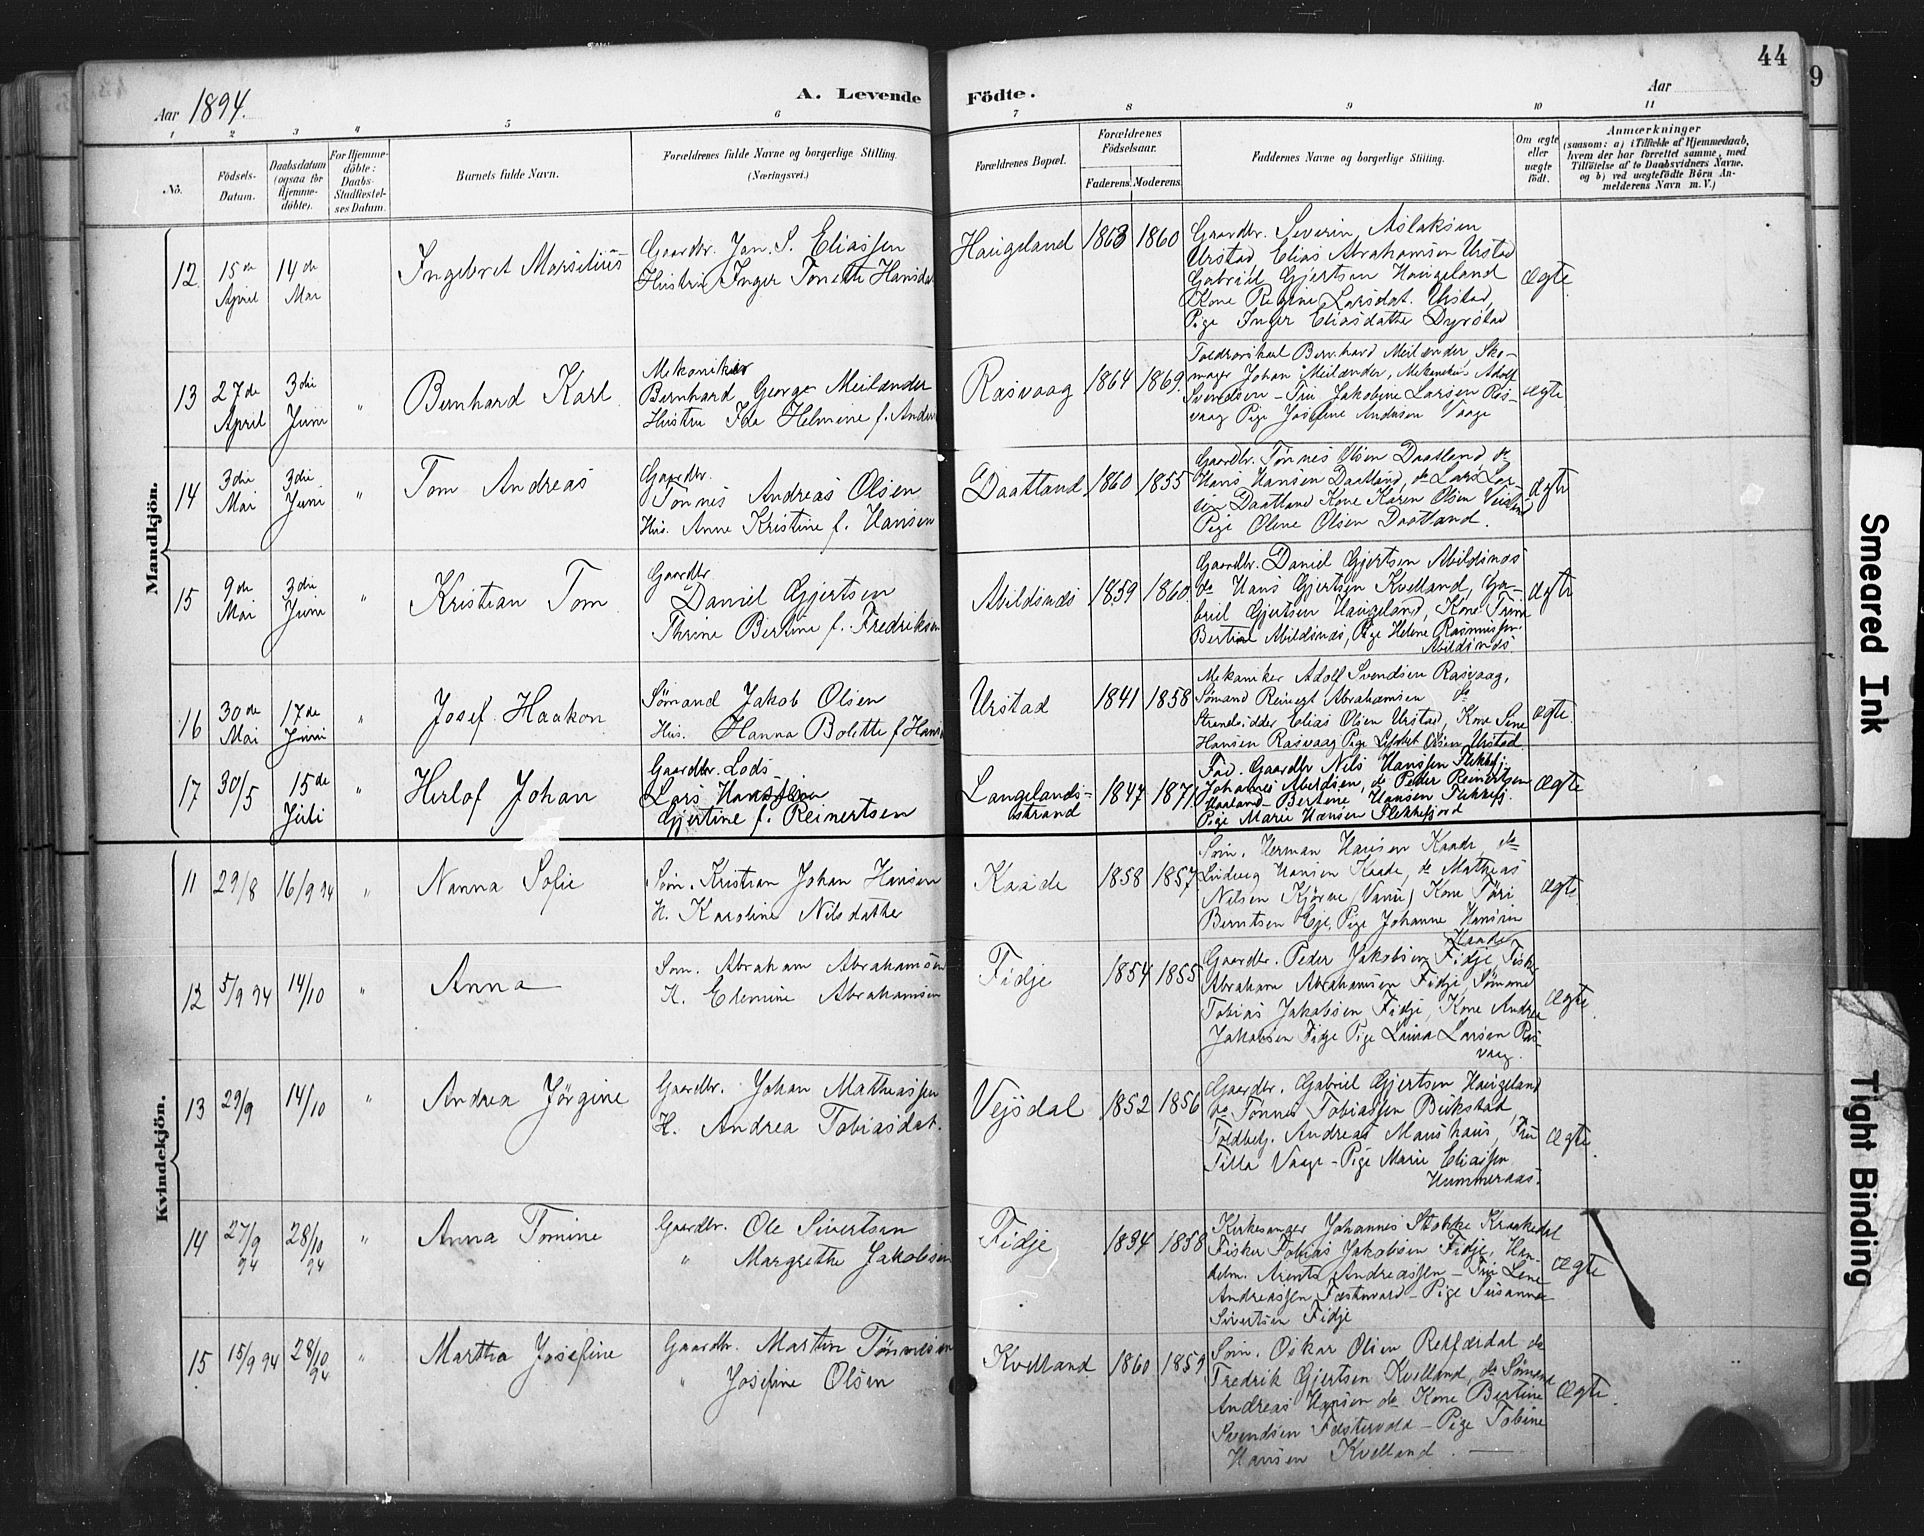 44
9
Aar 1894.
A. Levende Födte.
Aar
1 2 3 4 5 6 7 8 9 10 11
No.
Födsels-
Datum.
Daabsdatum
(ogsaa for
Hjemme-
döbte).
For Hjemme-
döbte:
Daabs-
Stadfæstel-
ses Datum.
Barnets fulde Navn.
Forældrenes fulde Navne og borgerlige Stilling.
(Næringsvei.)
Forældrenes Bopæl.
Forældrenes
Födselsaar.
Faderens. Moderens.
Faddernes Navne og borgerlige Stilling.
Om ægte
eller
uægte
födt.
Anmærkninger
(saasom: a) i Tilfælde af Hjemmedaab,
hvem der har forrettet samme, med
Tilföielse af to Daabsvidners Navne,
og b) ved uægtefödte Börn An-
melderens Navn m. V.)
Mandkjön.
12. 15de April
14de Mai
Ingebret Marselius
Gaardbr. Jan. S. Eliassen
Hustru Inger Tonette Hansda
Haugeland 1863 1860
Gaardbr. Severin Aslaksen
Urstad, Elias Abrahamsen Urstad
Gabriel Gjertsen Haugeland
Kone Regine Larsdat. Urstad,
Pige Inger Eliasdatter Dyrstad
Ægte.
13 27de April
3die Juni
"
Bernhard Karl
Mekaniker
Bernhard George Meilænder
Hustru Ida Helmine f. Anders
Rasvaag 1864 1869.
Bernhard Meilænder, Sko-
mager Johan Meilænder, Mekaniker Adolf
Svendsen - Fru Jakobine Larsen Ras-
vaag Pige Josefine Andersen Vaage
Ægte
14 3die Mai
3die Juni
"
Tom Andreas
Gaardbr.
Tønnes Andreas Olsen
Hus. Anne Kristine f. Hansen
Daatland 1860 1855
Gaardbr. Tønnes Olsen Daatland do
Hans Hansen Daatland, do Lars Lar-
sen Daatland Kone Karen Olsen
Pige Oline Olsen Daatland.
Ægte
15 9de Mai
3die Juni
"
Kristian Tom
Gaardbr
Daniel Gjertsen
Thrine Bertine f. Fredriksen
Abildsnæs 1859 1860.
Gaardbr. Daniel Gjertsen Abildsnæs
do Hans Gjertsen Kvelland, Ga-
briel Gjertsen Haugeland, Kone Trine
Bertine Abildsnæs, Pige Helene Rasmussen
Abildsnæs
Ægte
16 30de Mai
17de Juni
"
Josef Haakon
Sømand Jakob Olsen
Hus. Hanna Bolette f. Hans
Urstad 1841 1858
Mekaniker Adolf Svendsen Rasvaag,
Sømand Reinert Abrahamsen do
Strandsidder Elias Olsen Urstad, Kone Sine
Hansen Rasvaag Pige Olsen Urstad
Ægte.
17 30/5
15de Juli
"
Herlof Johan
Gaardbr. Lods
Lars Hansen
Gjertine f. Reinertsen
Langelands-
strand
1847 1871.
Fad. Gaardbr Nils Hansen Flekkefj.
Johannes Abelsen, do Peder Reinertsen
Haaland - Bertine Hansen Flekkefj.
Pige Marie Hansen Flekkefjord
Ægte
Kvindekjön.
11 29/8
16/9 94
"
Nanna Sofie
Søm. Kristian Johan Hansen
H. Karoline Nilsdatter
Kaade 1858 1857
Søm. Herman Hansen Kaade, do
Ludvig Hansen Kaade, do Mathias
Nilsen Kjørve (Vanse) Kone Tøri
Berntsen Eje, Pige Johanne Hansen
Kaade
Ægte
12 5/9 94
14/10
"
Anna
Søm. Abraham Abrahamsen
H. Elemine Abrahamsen
Fidje 1854 1855
Gaardbr. Peder Jakobsen Fidje Fisker
Abraham Abrahamsen Fidje, Sømand
Tobias Jakobsen Fidje, Kone Andrea
Jakobsen Fidje Pige Laura Larsen Ras-
vaag.
Ægte.
13 29/9
14/10
"
Andrea Jørgine
Gaardbr. Johan Mathiassen
H. Andrea Tobiasdat.
Vejsdal 1852 1856
Gaardbr. Gabriel Gjertsen Haugeland
do Tønnes Tobiassen Birkstad,
Toldbetj. Andreas Maushaus, Fru
Tilla Vaage - Pige Marie Eliassen
Hummeraas.
Ægte.
14 27/9 94
28/10 94
"
Anna Tomine
Gaardbr. Ole Sivertsen
" Margrethe Jakobsen
Fidje 1834 1858
Kirkesanger Johannes Stokke Kraakedal
Fisker Tobias Jakobsen Fidje, Han-
delm. Arents Andreassen - Fru Lene
Andreassen - Pige Susanne
Sivertsen Fidje
Ægte
15 15/9 94
28/10 94
"
Martha Josefine
Gaardbr. Martin Tønnesen
" Josefine Olsen
Kvelland 1860 1859
Søm. Oskar Olsen Refærdal do
Fredrik Gjertsen Kvelland, do Sømand
Andreas Hansen do Kone Bertine
Svendsen - Pige Tobine
Hansen Kvelland.
Ægte.
Smeared Ink
Tight Binding